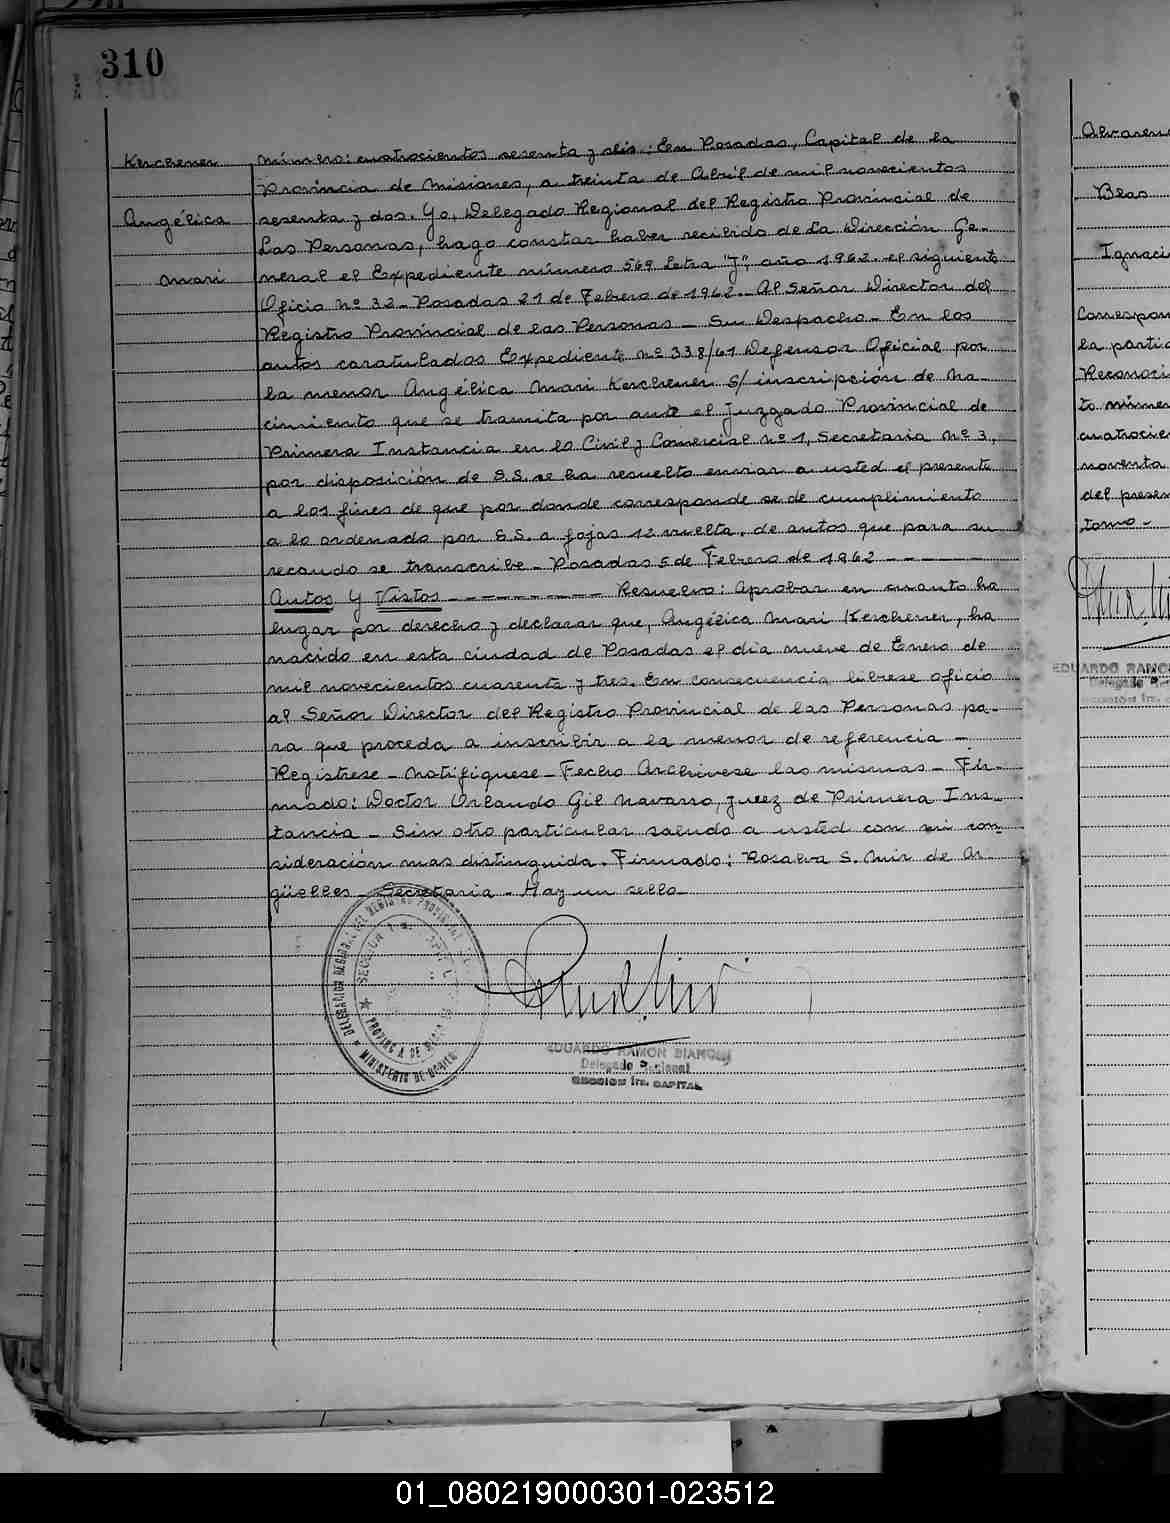 310
Kerchener
Angélica
Mari
número: cuatrocientos sesenta y seis: En Posadas, Capital de la
Provincia de Misiones, a treinta de Abril de mil novecientos
sesenta y dos. Yo, Delegado Regional del Registro Provincial de
Las Personas, hago constar haber recibido de La Dirección Ge-
neral el Expediente número 569 Letra "J", año 1962. el siguiente
Oficio nº 32 - Posadas 21 de Febrero de 1962.- Al Señor Director del
Registro Provincial de las Personas - Su Despacho - En los
autos caratulados Expediente nº 338/61 Defensor Oficial por
la menor Angélica Mari Kerchener S/ inscripción de Na-
cimiento que se tramita por ante el Juzgado Provincial de
Primera Instancia en lo Civil y Comercial nº 1, Secretaria nº 3,
por disposición de S.S. se ha resuelto enviar a usted el presente
a los fines de que por donde corresponde se de cumplimiento
a lo ordenado por S.S. a fojas 12 vuelta, de autos que para su
recaudo se transcribe - Posadas 5 de Febrero de 1962 - - - - - -
Autos y Vistos - - - - - - - - - - Resuelvo: Aprobar en cuanto ha
lugar por derecho y declarar que, Angélica Mari Kerchener, ha
nacido en esta ciudad de Posadas el día nueve de Enero de
mil novecientos cuarenta y tres. En consecuencia líbrese oficio
al Señor Director del Registro Provincial de las Personas pa-
ra que proceda a inscribir a la menor de referencia -
Registrese - Notifiquese - Fecho Archivese las mismas - Fir-
mado: Doctor Orlando Gil Navarro, Juez de Primera Ins-
tancia - Sin otro particular saludo a usted con mi con-
sideración mas distinguida. Firmado: Rosalva S. Mir de Ar-
güelles - Secretaria - Hay un sello -
DELEGACION REGIONAL DEL REGISTRO PROVINCIAL
SECCION 1ra.
PROVINCIA DE MISIONES
MINISTERIO DE GOBIERNO
EDUARDO RAMON BIANCHI
Delegado Regional
SECCION 1ra. CAPITAL
Alvaren
Blas
Ignaci
Correspon
la partid
Reconoci
to número
cuatrocien
noventa
del presen
tomo -
EDUARDO RAMON
Delegado Re
01_080219000301-023512